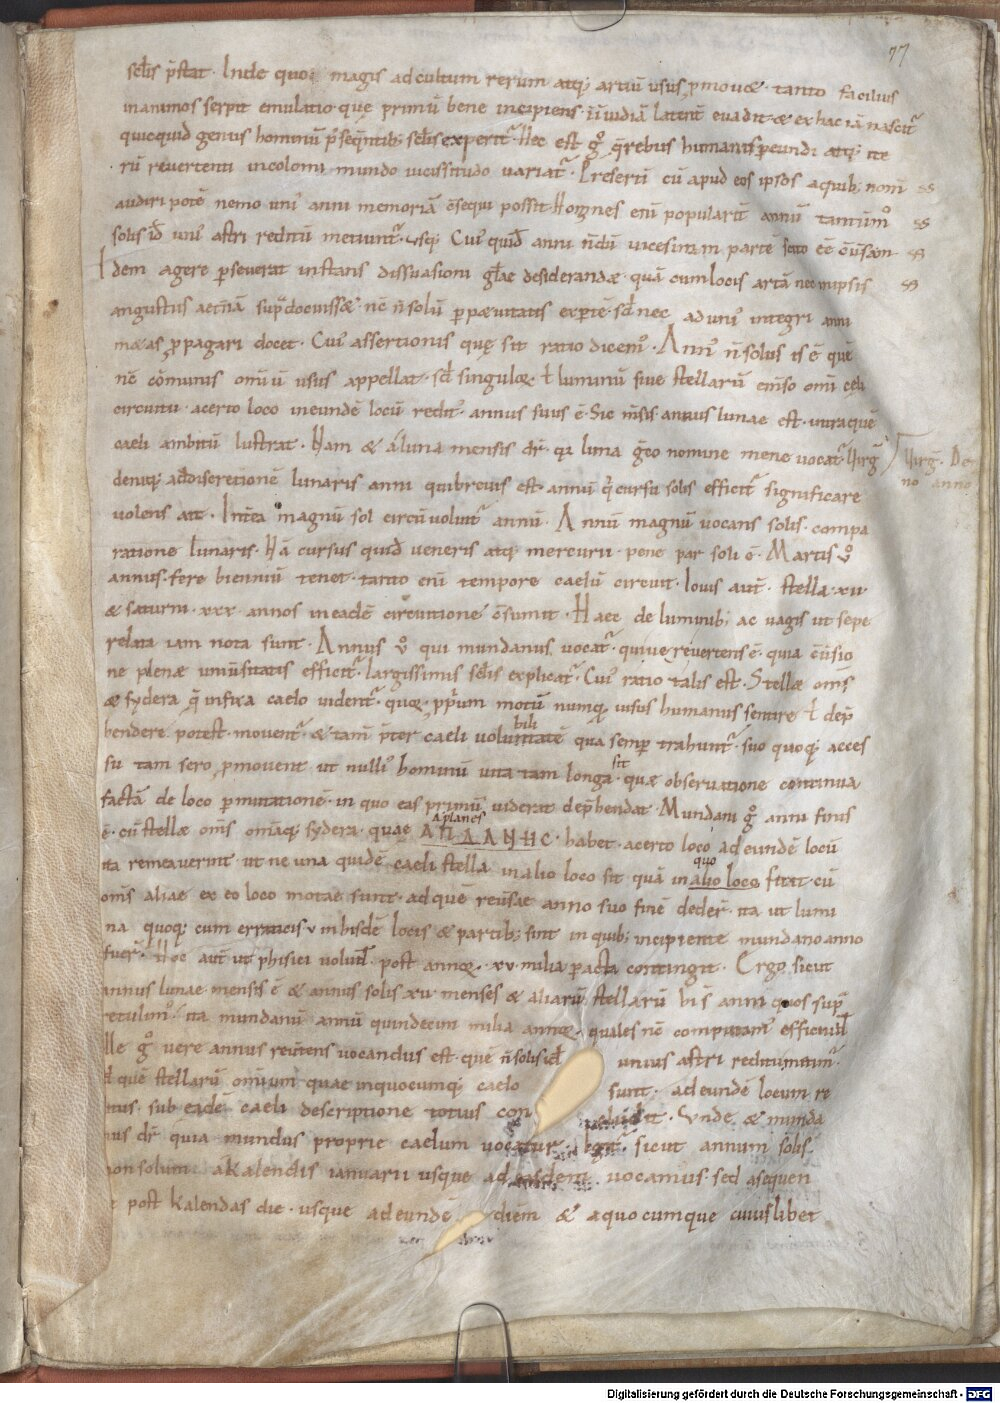 77
sclis p̄stat · Inde quoq; magis adcultum rerum atq; artiū usus ꝓmouet · tanto facilius
inanimos serpit emulatio · quę primū bene incipiens · īuidiā latent̄ euadit · & ex hac iā nascit᷑
quicquid genus hominū p̄seq̄ntib; sclis experit᷑ · Hec est g̊ q̄ rebus humanis pereundi atq; ite
rū reuertenti incolomi mundo uicissitudo uariat᷑ · Preserti cū apud eos ipsos aquib;
audiri potē nemo uni᷒ anni memoriā c̄sequi possit · Homines eni populariť annū tantūm̊
solis id̄ uni᷒ astri reditū metiunt᷑ · usq; Cui᷒ quid anni n̄dū uicesimam partē scito eē c̄uersam
Idem agere perseuerat instans dissuasioni gl̄ae desiderandæ · quā cum locis artā nec inipsis
angustiis aet̄nā sup᷑ docuisset · nc̄ n̄ solū ꝑpetuitatis exptē · sd nec ad uni᷒ integri anni
metas ꝓpagari docet · Cui᷒ assertionis quę sit ratio dicem᷒ · Ann᷒ n̄ solus is ē quē
nc̄ cōmunis omiū usus appellat · sd singuloꝝ ł luminū siue stellarū emso omi cęli
circuitu · acerto loco ineundē locū redit᷒ · annus suus ē · Sic m̄sis annus lunae est · intra quē
caeli ambitū lustrat · Nam & áluna mensis dr̄ · q̄a luna ḡco nomine mene uocat᷑ · Uirg̅
Uirg̅ · De
no anno
deniq; addiscretionē lunaris anni qui breuis est · annū q̇ cursu solis efficit᷑ significare
uolens ait · Inťea magnū sol circūuoluit᷑ annū · Annū magnū uocans solis · compa
ratione lunaris · Nā cursus quid̄ ueneris atq; mercurii · pene par soli ē · Martis u̅
annus · fere bienniū tenet · tanto eni tempore caelū circuit · Iouis aut̄ stella · xii ·
& saturni · xxx · annos ineadē circuitione c̄sumit · Haec de luminib; ac uagis ut sepe
relata iam nota sunt · Annus u̅ qui mundanus uocat᷑ · qui uere uertens ē · quia c̄uersio
ne plenæ uniūsitatis efficit᷑ · largissimis sclis explicat᷑ · Cui᷒ ratio talis est · Stellæ oms
& sydera q̄ infixa caelo uident᷑ · quoꝝ ꝓp̄um motū nūmq; uisus humanus sentire ł dep̄
hendere potest · mouent᷑ · & tam̄ p̄ter caeli uolubilitatē qua semp trahunt᷑ · suo quoq; acces
su tam sero ꝓmouent · ut nulli᷒ hominū uita tam longa sit · quæ obseruatione continua
factā de loco ꝑmutationē · in quo eas primū uiderat dep̄hendat · Mundani g̊ anni finis
ē · cū stellæ om̄s omq; sydera · quae
aplanes
ΑΠΛΑΝΗC · habet · acerto loco adeundē locū
ita remeauerint · ut ne una quidē caeli stella inalio loco sit quā in alio loco fuit · cū
quo
om̄s aliae ex eo loco motae sunt · adquē reuersae anno suo finē dederꝭ · ita ut lumi
na quoq; cum erraticis · v · inhisdē locis & partib; sint in quib; incipiente mundano anno
fuerꝭ · Hoc aut̄ ut phisici uolut̄ post annoꝝ · xv · milia peracta contingit · Ergo sicut
annus lunae mensis ē & annus solis xii menses & aliarū stellarū hi s̄ anni quos sup᷑
retulim᷒ · ita mundanū annū quindecim milia annoꝝ · quales nc̄ computam᷒ efficiunt
lle g̊ uere annus reūtens uocandus est · quē n̄ solis id̄ unius astri reditu
d quē stellarū omium quae inquocumq; caelo sunt · adeundē locum re
itus · sub eadē caeli descriptione totius con Unde & munda
nus dr̄ quia mundus proprie caelum uocatur · Igit᷑ sicut annum solis
non solum akalendis ianuarii usque ad easdem uocamus · sed asequen
e post kalendas die · usque adeunde diem & aquocumque cuiuslibet
Digitalisierung gefördert durch die Deutsche Forschungsgemeinschaft - DFG